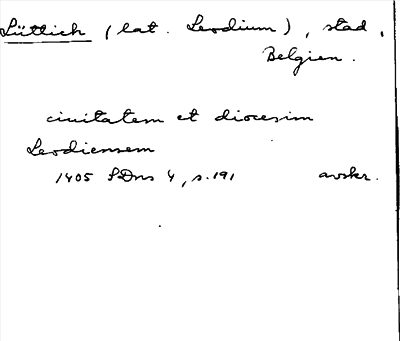 Lüttich (lat. Leodium), stad,
Belgien.
ciuitatem et diocesim
Leodiensem
1405 SDns 4, s. 191 avskr.